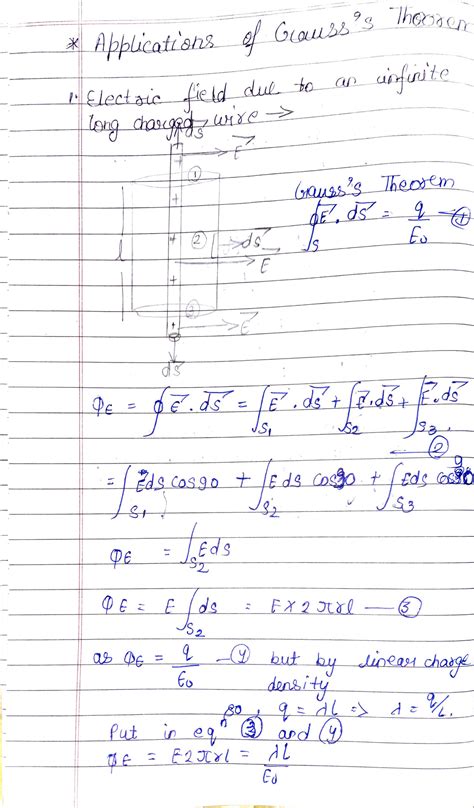 * Applications of Gauss's Theorem
1. Electric field due to an infinite
long charged wire →
ds
E
①
Gauss's Theorem
∮S E⃗ . ds⃗ = q/E₀ — ①
+
l
②
ds
E
③
E
ds
φE = ∮ E⃗ . ds⃗ = ∫S₁ E⃗ . ds⃗ + ∫S2 E⃗ . ds⃗ + ∫S3 E⃗ . ds⃗
②
= ∫S₁ Eds cos90 + ∫S2 Eds cos + ∫S3 Eds cos90
φE = ∫S2 Eds
φE = E ∫S2 ds = E×2πrl — ③
as φE = q/E₀ — ④ but by linear charge
density
so, q = λL => λ = q/L.
Put in eqⁿ ③ and ④
φE = E2πrl = λL/E₀